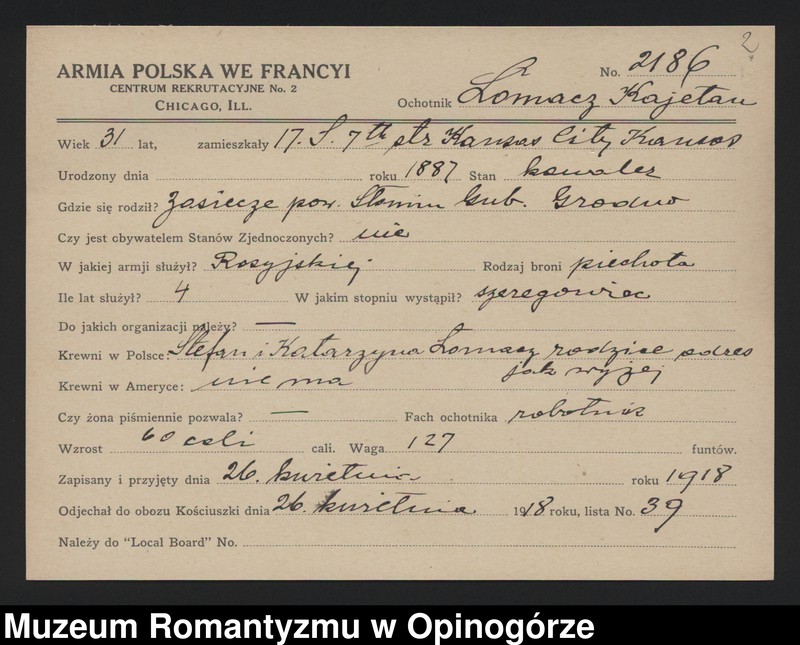 2
ARMIA POLSKA WE FRANCYI
CENTRUM REKRUTACYJNE No. 2
CHICAGO, ILL.
No. 2186
Ochotnik Łomacz Kajetan
Wiek 31 lat, zamieszkały 17. S. 7th str Kansas City Kansas
Urodzony dnia roku 1887 Stan kawaler
Gdzie się rodził? Zasiecze pow. Słonim Gub. Grodno
Czy jest obywatelem Stanów Zjednoczonych? nie
W jakiej armji służył? Rosyjskiej Rodzaj broni piechota
Ile lat służył? 4 W jakim stopniu wystąpił? szeregowiec
Do jakich organizacji należy? —
Krewni w Polsce: Stefan i Katarzyna Łomacz rodzice adres
jak wyżej
Krewni w Ameryce: nie ma
Czy żona piśmiennie pozwala? — Fach ochotnika robotnik
Wzrost 60 cali cali. Waga 127 funtów.
Zapisany i przyjęty dnia 26. kwietnia roku 1918
Odjechał do obozu Kościuszki dnia 26. kwietnia 1918 roku, lista No. 39
Należy do "Local Board" No.
Muzeum Romantyzmu w Opinogórze